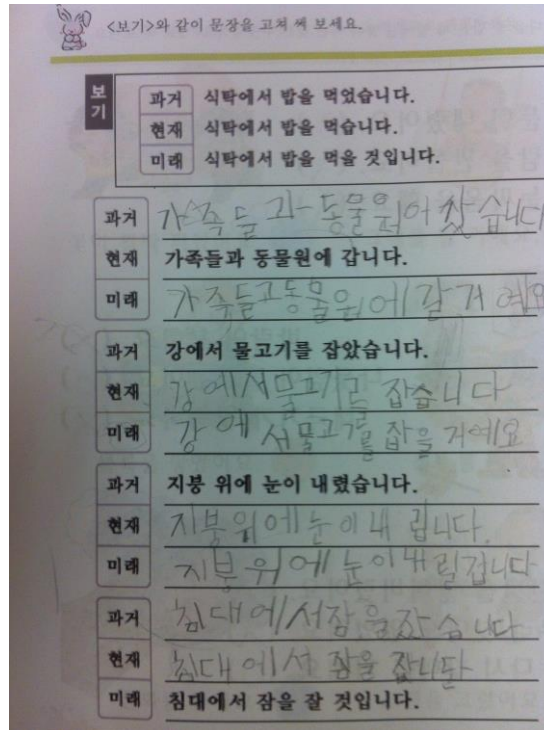 <보기>와 같이 문장을 고쳐 써 보세요.
보기
과거 식탁에서 밥을 먹었습니다.
현재 식탁에서 밥을 먹습니다.
미래 식탁에서 밥을 먹을 것입니다.
과거 가족들과 동물원에 갔습니다
현재 가족들과 동물원에 갑니다.
미래 가족들고동물원에 갈거예요
과거 강에서 물고기를 잡았습니다.
현재 강에서물고기를 잡습니다
미래 강에서물고기를 잡을 거예요
과거 지붕 위에 눈이 내렸습니다.
현재 지붕위에눈이내립니다.
미래 지붕위에눈이내릴겁니다
과거 침대에서잠을잤습니다
현재 침대에서 잠을 잡니다
미래 침대에서 잠을 잘 것입니다.